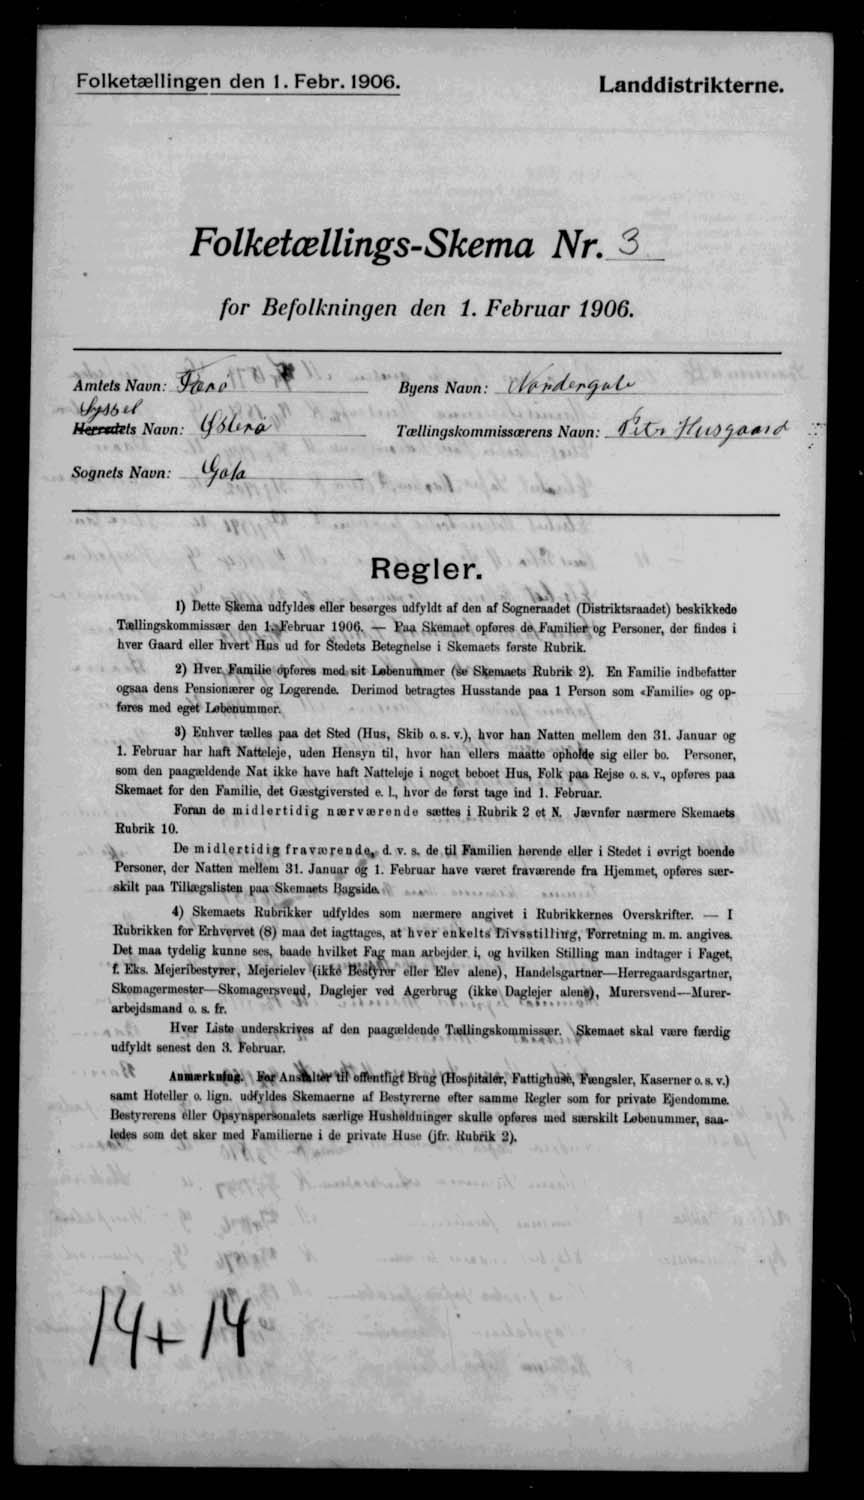 Folketællingen den 1. Febr. 1906.
Landdistrikterne.
Folketællings-Skema Nr. 3
for Befolkningen den 1. Februar 1906.
Amtets Navn: Færø
Byens Navn: Nordergøte
Syssel
Herredets Navn: Østerø
Tællingskommissærens Navn: Petr Husgaard
Sognets Navn: Gøta
Regler.
1) Dette Skema udfyldes eller besørges udfyldt af den af Sogneraadet (Distriktsraadet) beskikkede
Tællingskommissær den 1. Februar 1906. — Paa Skemaet opføres de Familier og Personer, der findes i
hver Gaard eller hvert Hus ud for Stedets Betegnelse i Skemaets første Rubrik.
2) Hver Familie opføres med sit Løbenummer (se Skemaets Rubrik 2). En Familie indbefatter
ogsaa dens Pensionærer og Logerende. Derimod betragtes Husstande paa 1 Person som «Familie» og op-
føres med eget Løbenummer.
3) Enhver tælles paa det Sted (Hus, Skib o. s. v.), hvor han Natten mellem den 31. Januar og
1. Februar har haft Natteleje, uden Hensyn til, hvor han ellers maatte opholde sig eller bo. Personer,
som den paagældende Nat ikke have haft Natteleje i noget beboet Hus, Folk paa Rejse o. s. v., opføres paa
Skemaet for den Familie, det Gæstgiversted e. l., hvor de først tage ind 1. Februar.
Foran de midlertidig nærværende sættes i Rubrik 2 et N. Jævnfør nærmere Skemaets
Rubrik 10.
De midlertidig fraværende, d. v. s. de til Familien hørende eller i Stedet i øvrigt boende
Personer, der Natten mellem 31. Januar og 1. Februar have været fraværende fra Hjemmet, opføres sær-
skilt paa Tillægslisten paa Skemaets Bagside.
4) Skemaets Rubrikker udfyldes som nærmere angivet i Rubrikkernes Overskrifter. — I
Rubrikken for Erhvervet (8) maa det iagttages, at hver enkelts Livsstilling, Forretning m. m. angives.
Det maa tydelig kunne ses, baade hvilket Fag man arbejder i, og hvilken Stilling man indtager i Faget,
f. Eks. Mejeribestyrer, Mejerielev (ikke Bestyrer eller Elev alene), Handelsgartner—Herregaardsgartner,
Skomagermester—Skomagersvend, Daglejer ved Agerbrug (ikke Daglejer alene), Murersvend—Murer-
arbejdsmand o. s. fr.
Hver Liste underskrives af den paagældende Tællingskommissær. Skemaet skal være færdig
udfyldt senest den 3. Februar.
Anmærkning. For Anstalter til offentligt Brug (Hospitaler, Fattighuse, Fængsler, Kaserner o. s. v.)
samt Hoteller o. lign. udfyldes Skemaerne af Bestyrerne efter samme Regler som for private Ejendomme.
Bestyrerens eller Opsynspersonalets særlige Husholdninger skulle opføres med særskilt Løbenummer, saa-
ledes som det sker med Familierne i de private Huse (jfr. Rubrik 2).
14+14